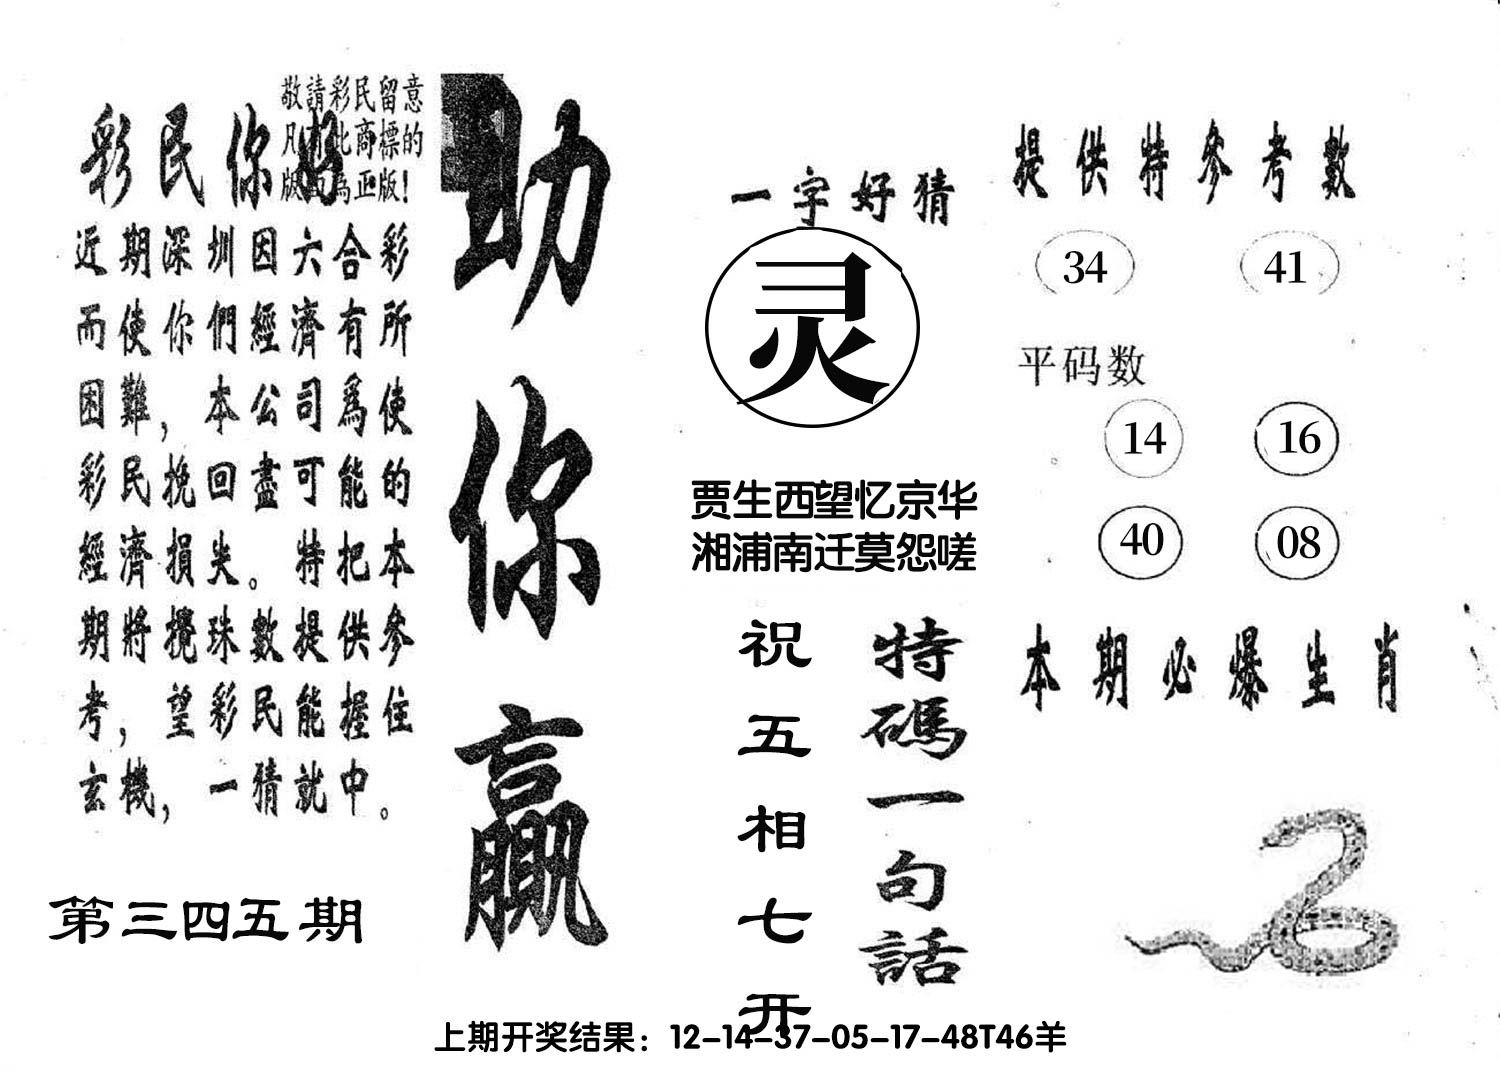 敬請彩民留意
凡有此商標的
版面為正版!
彩民你好
近期深圳因六合彩
而使你們經濟有所
困難，本公司爲使
彩民挽回盡可能的
經濟損失。特把本
期將攪珠數提供參
考，望彩民能握住
玄機，一猜就中。
第三四五期
助你贏
一字好猜
灵
贾生西望忆京华
湘浦南迁莫怨嗟
特碼一句話
祝五相七开
提供特參考數
34 41
平码数
14 16
40 08
本期必爆生肖
上期开奖结果：12-14-37-05-17-48T46羊